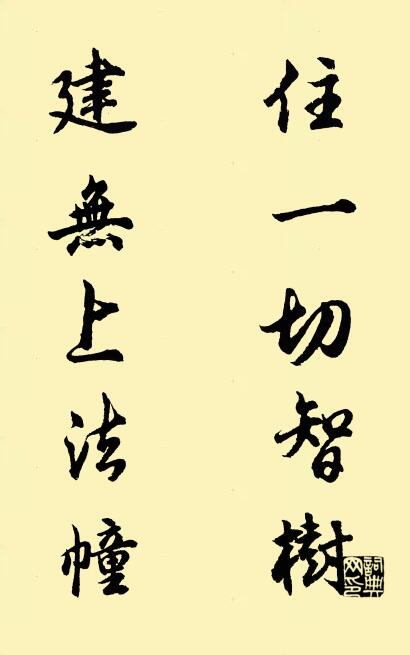 住一切智樹
建無上法幢
詞典網印